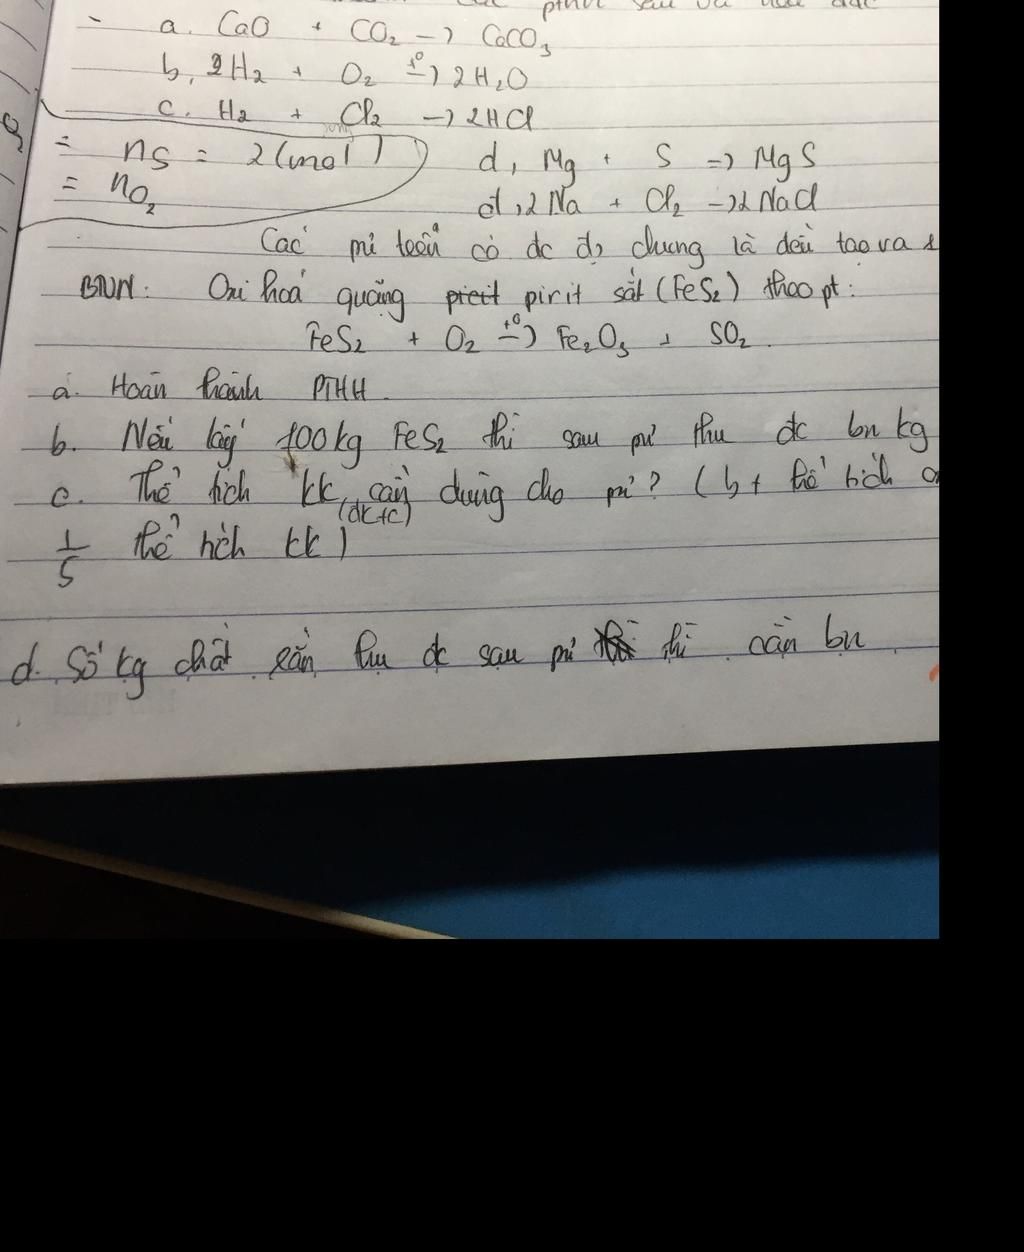 a. CaO + CO₂ → CaCO₃
b, 2H₂ + O₂ -t⁰-> 2H₂O
c. H₂ + Cl₂ → 2HCl
= nS = 2 (mol) d, Mg + S → MgS
= nO₂ d, 2Na + Cl₂ → 2NaCl
Các pư trên có đc đ² chung là đều tạo ra 1
BTVN: Oxi hoá quặng pirit sắt (FeS₂) theo pt:
FeS₂ + O₂ -t⁰-> Fe₂O₃ + SO₂.
a. Hoàn thành PTHH
b. Nếu lấy 100kg FeS₂ thì sau pư thu đc bn kg
c. Thể tích kk (đktc) cần dùng cho pư? (bt thể tích
1/5 thể tích kk)
d. Số kg chất rắn thu đc sau pư thì cần bn